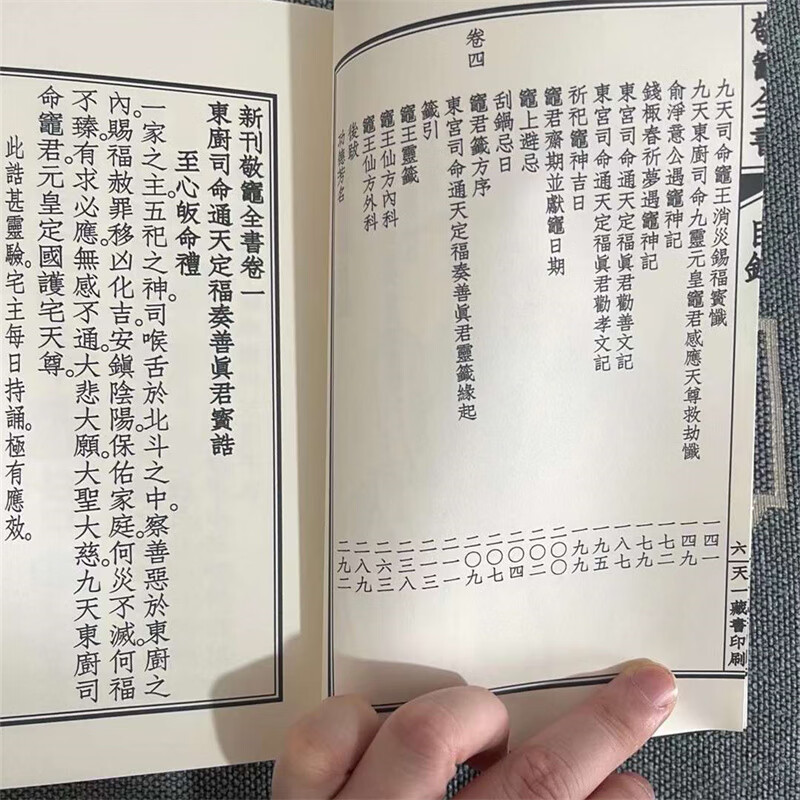 敬竈全書
目錄
六
天一藏書印刷
九天司命竈王消災錫福寳懺 一四一
九天東廚司命九靈元皇竈君感應天尊救劫懺 一四九
俞淨意公遇竈神記 一七二
錢椒春祈夢遇竈神記 一七九
東宮司命通天定福真君勸善文記 一八七
東宮司命通天定福眞君勸孝文記 一九五
祈祀竈神吉日 一九九
竈君齋期並獻竈日期 二〇〇
竈上避忌 二〇二
刮鍋忌日 二〇四
卷四
竈君籤方序 二〇七
東宮司命通天定福奏善眞君靈籤緣起 二〇九
籤引 二一一
竈王靈籤 二一三
竈王仙方內科 二三八
竈王仙方外科 二六三
後跋 二八九
功德芳名 二九二
新刊敬竈全書卷一
東廚司命通天定福奏善眞君寳誥
至心皈命禮
一家之主。五祀之神。司喉舌於北斗之中。察善惡於東廚之
內。賜福赦罪。移凶化吉。安鎭陰陽。保佑家庭。何災不滅。何福
不臻。有求必應。無感不通。大悲大願。大聖大慈。九天東廚司
命竈君。元皇定國護宅天尊。
此誥甚靈驗。宅主每日持誦。極有應效。